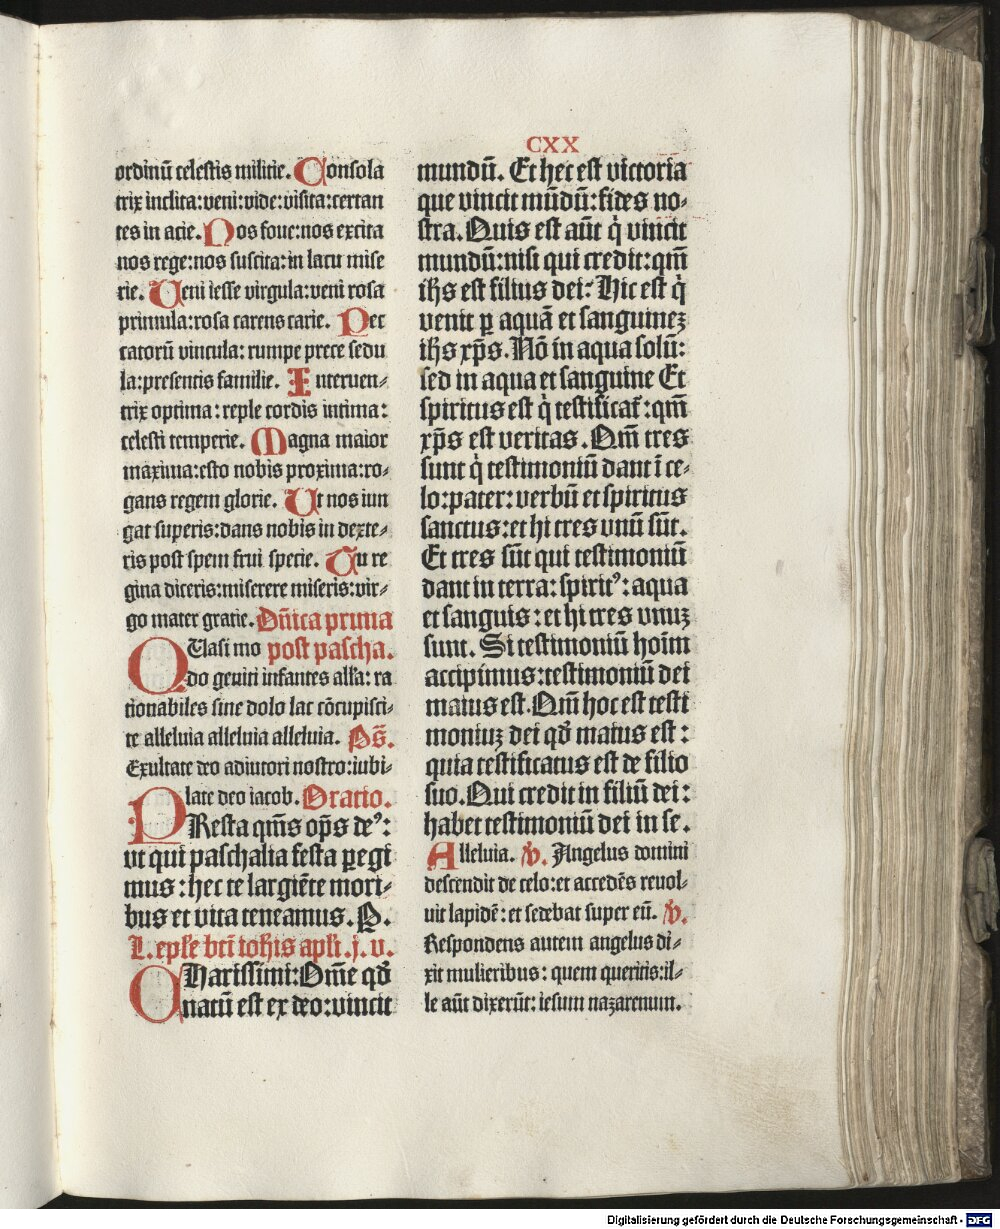 CXX
ordinū celestis militie. Consola
trix inclita: veni: vide: visita: certan
tes in acie. Nos foue: nos excita
nos rege: nos suscita: in lacu mise
rie. Ueni iesse virgula: veni rosa
primula: rosa carens carie. Pec
catorū vincula: rumpe prece sedu
la: presentis familie. Interuen⸗
trix optima: reple cordis intima:
celesti temperie. Magna maior
maxima: esto nobis proxima: ro⸗
gans regem glorie. Ut nos iun
gat superis: dans nobis in dexte⸗
ris post spem frui specie. Tu re
gina diceris: miserere miseris: vir⸗
go mater gratie. Dñica prima
QUasi mo post pascha.
do geniti infantes all'a: ra
tionabiles sine dolo lac cōcupisci⸗
te alleluia alleluia alleluia. Ps̄.
Exultate deo adiutori nostro: iubi⸗
late deo iacob. Oratio.
PResta qm̄s op̄s de⁹:
vt qui paschalia festa ꝑegi
mus: hec te largiēte mori⸗
bus et vita teneamus. P.
L. ep̄le bt̄i ioh̄is apl̄i. j. v.
CHarissimi: Om̄e qd̕
natū est ex deo: vincit
mundū. Et hec est victoria
que vincit mūdū: fides no⸗
stra. Quis est aūt q̇ vincit
mundū: nisi qui credit: qm̄
ih̄s est filius dei? Hic est q̇
venit ꝑ aquā et sanguinez
ih̄s xp̄s. Nō in aqua solū:
sed in aqua et sanguine Et
spiritus est q̇ testificat᷑: qm̄
xp̄s est veritas. Qm̄ tres
sunt q̇ testimoniū dant ī ce⸗
lo: pater: verbū et spiritus
sanctus: et hi tres vnū sūt.
Et tres sūt qui testimoniū
dant in terra: spirit⁹: aqua
et sanguis: et hi tres vnuz
sunt. Si testimoniū hoīm
accipimus: testimoniū dei
maius est. Qm̄ hoc est testi
moniuz dei qd̕ maius est:
quia testificatus est de filio
suo. Qui credit in filiū dei:
habet testimoniū dei in se.
Alleluia. ℣. Angelus domini
descendit de celo: et accedēs reuol⸗
uit lapidē: et sedebat super eū. ℣.
Respondens autem angelus di⸗
xit mulieribus: quem queritis: il⸗
le aūt dixerūt: iesum nazarenum.
Digitalisierung gefördert durch die Deutsche Forschungsgemeinschaft - DFG